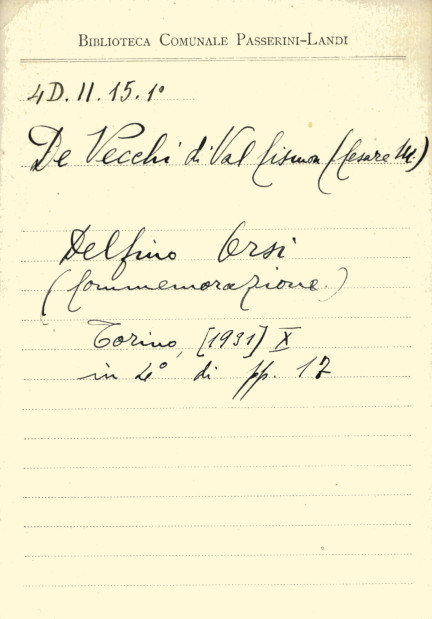 BIBLIOTECA COMUNALE PASSERINI-LANDI
4D. II. 15. 1°
De Vecchi di Val Cismon (Cesare M.)
Delfino Orsi
(Commemorazione.)
Torino, [1931] X
in 4° di pp. 17